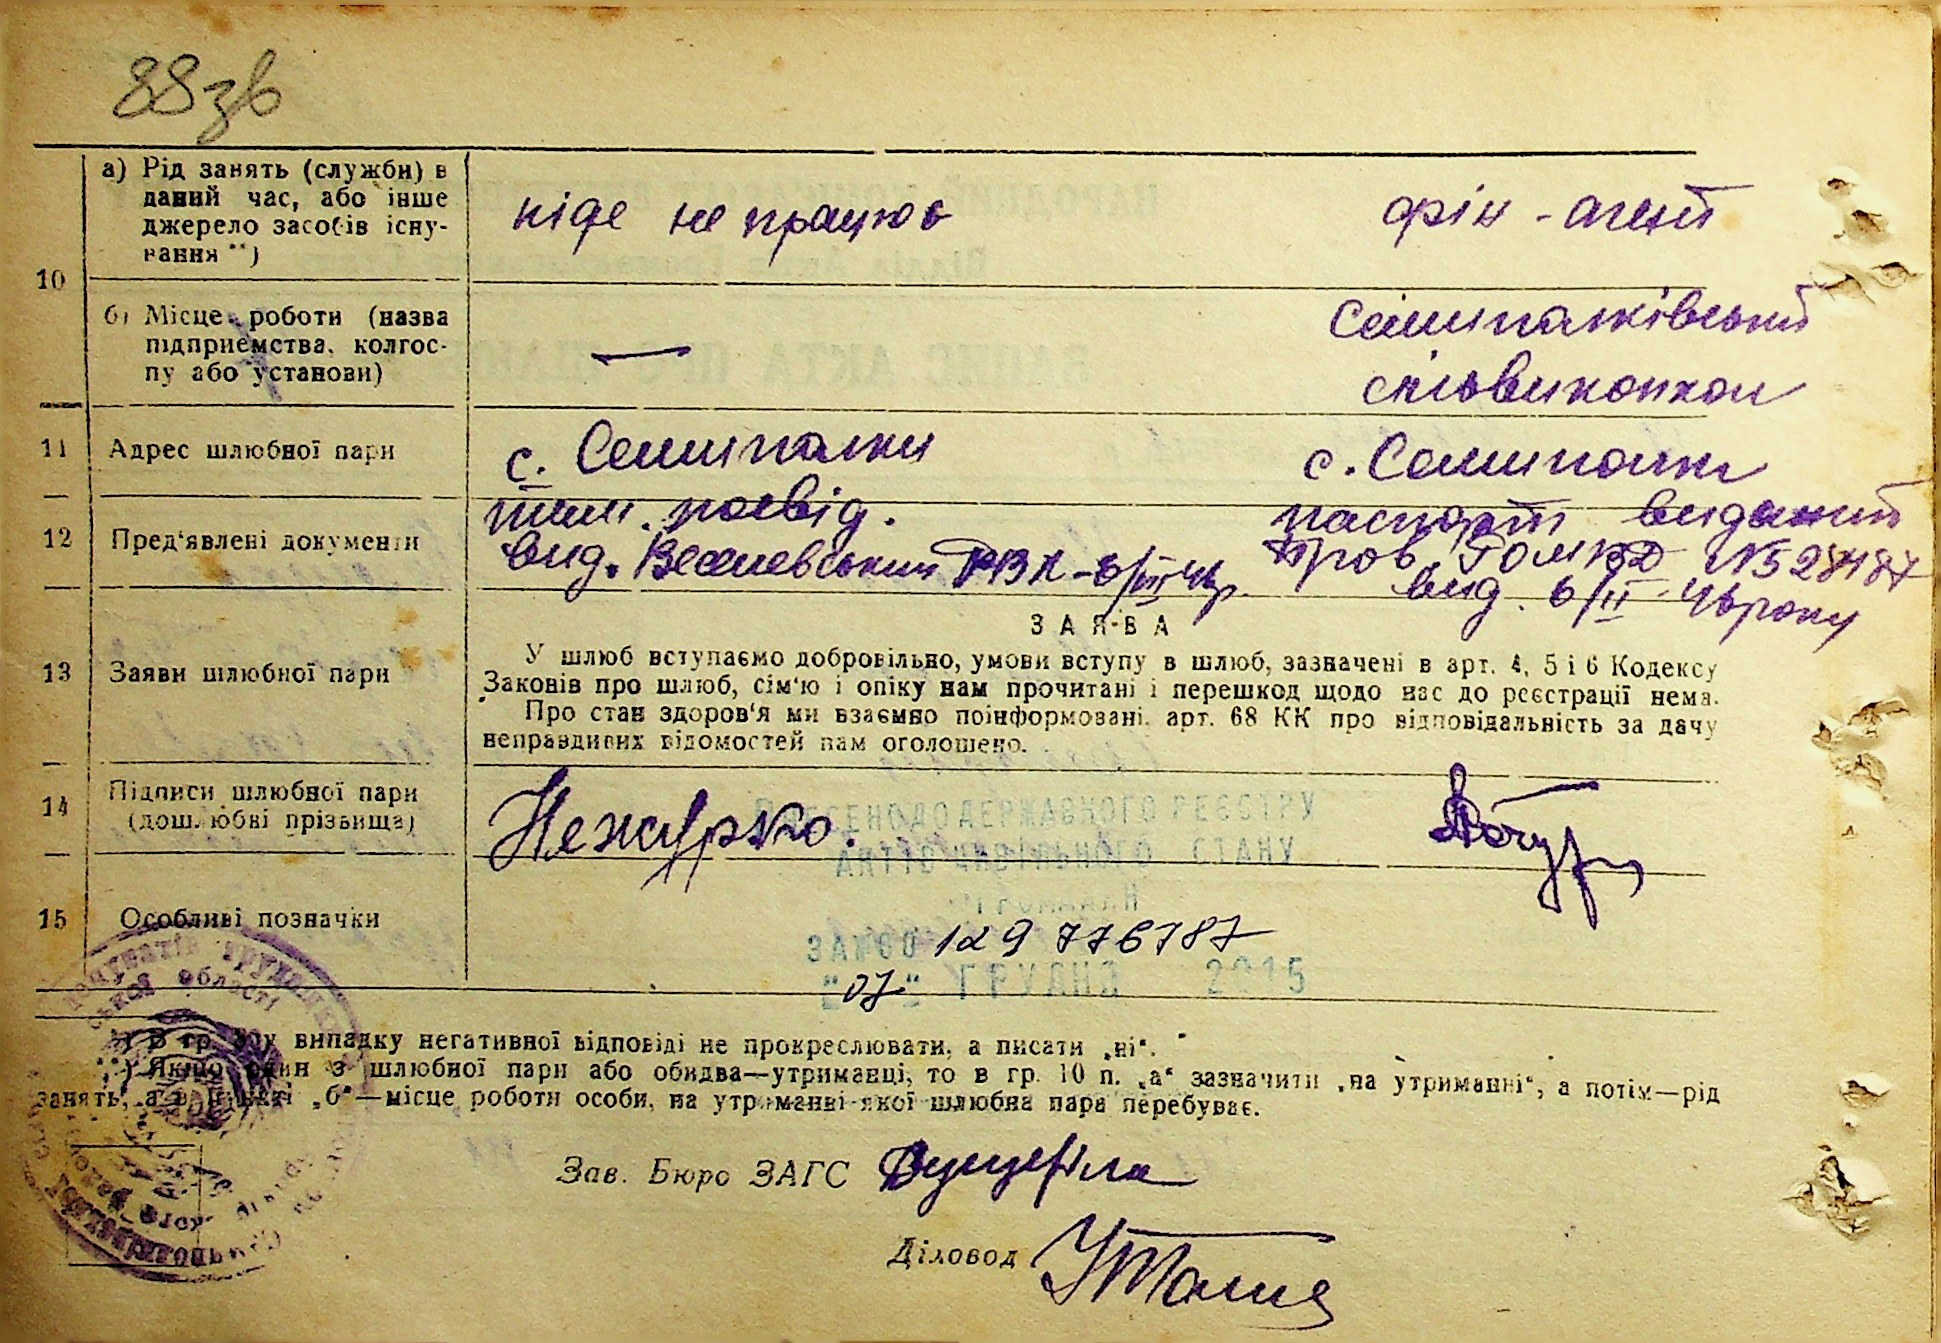 88зв
а) Рід занять (служби) в
даний час, або інше
джерело засобів існу-
вання **)
ніде не працює
фін - агент
10
б) Місце роботи (назва
підприємства, колгос-
пу або установи)
—
Семиполківський
сільвиконком
11
Адрес шлюбної пари
с. Семиполки
с. Семиполки
12
Пред‘явлені документи
тим. посвід.
вид.
паспорт виданий
№
вид. 6/II
13
Заяви шлюбної пари
ЗАЯВА
У шлюб вступаємо добровільно, умови вступу в шлюб, зазначені в арт. 4, 5 і 6 Кодексу
Законів про шлюб, сім‘ю і опіку нам прочитані і перешкод щодо нас до реєстрації нема.
Про стан здоров‘я ми взаємно поінформовані, арт. 68 КК про відповідальність за дачу
неправдивих відомостей нам оголошено.
14
Підписи шлюбної пари
(дошлюбні прізвища)
ВНЕСЕНО ДО ДЕРЖАВНОГО РЕЄСТРУ
АКТІВ ЦИВІЛЬНОГО СТАНУ
ГРОМАДЯН
15
Особливі позначки
ЗА № 00 129 776787
"07" ГРУДНЯ 2015
*) В гр. у випадку негативної відповіді не прокреслювати, а писати „ні“.
**) Якщо один з шлюбної пари або обидва—утриманці, то в гр. 10 п. „а“ зазначити „на утриманні“, а потім—рід
занять, а в пункті „б“—місце роботи особи, на утриманні якої шлюбна пара перебуває.
Зав. Бюро ЗАГС
Діловод